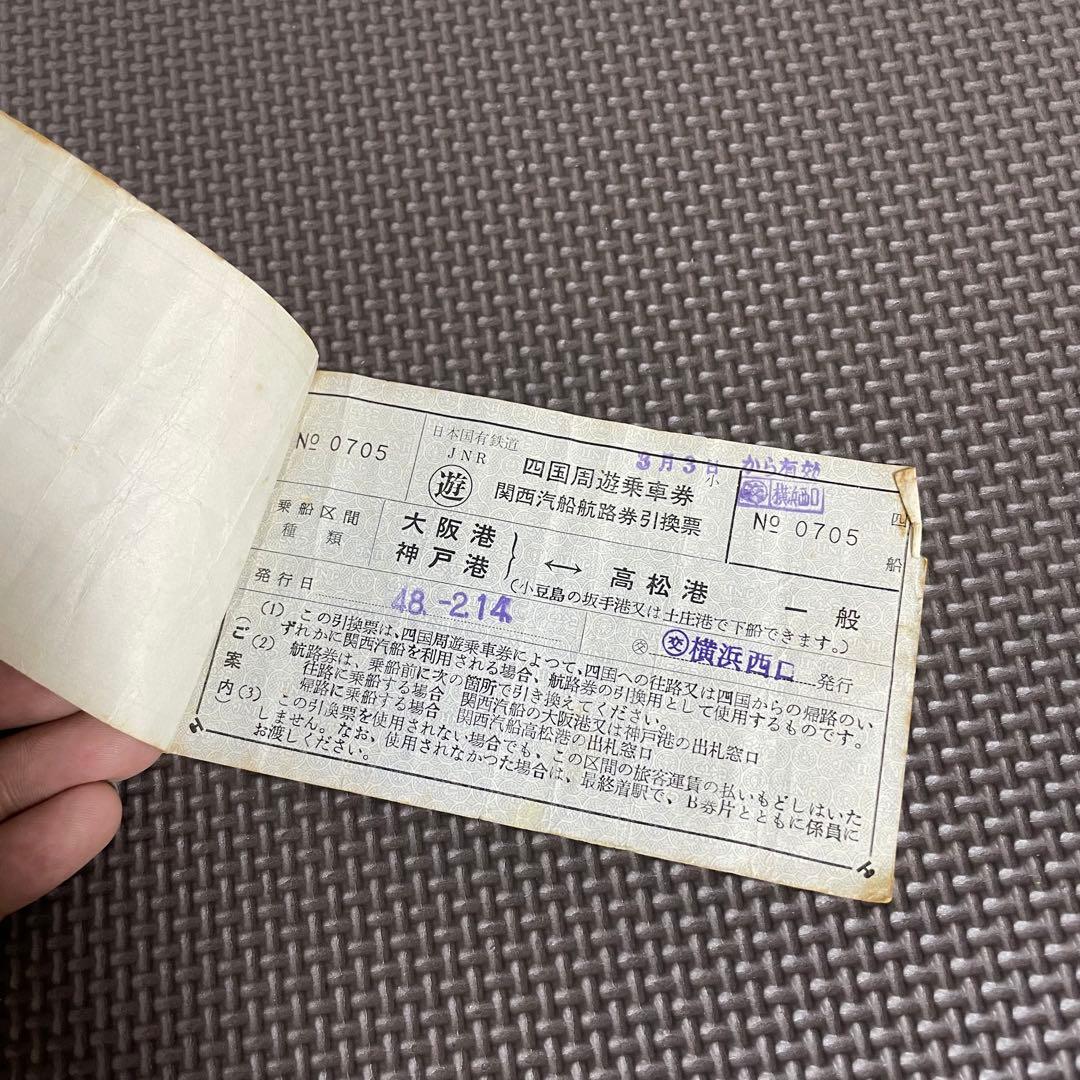 3月3日 から有効
日本国有鉄道
JNR
№ 0705
遊
四国周遊乗車券
小
関西汽船航路券引換票
交 横浜西口
№ 0705
四
船
乗船区間
種類
大阪港
神戸港
↔ 高松港
一般
(小豆島の坂手港又は土庄港で下船できます。)
発行日
48.-2.14
交 交 横浜西口 発行
(ご案内)
(1) この引換票は、四国周遊乗車券によつて、四国への往路又は四国からの帰路のい
ずれかに関西汽船を利用される場合、航路券の引換用として使用するものです。
(2) 航路券は、乗船前に次の箇所で引き換えてください。
往路に乗船する場合 関西汽船の大阪港又は神戸港の出札窓口
帰路に乗船する場合 関西汽船高松港の出札窓口
(3) この引換票を使用されない場合でも、この区間の旅客運賃の払いもどしはいた
しません。なお、使用されなかつた場合は、最終着駅で、B券片とともに係員に
お渡しください。